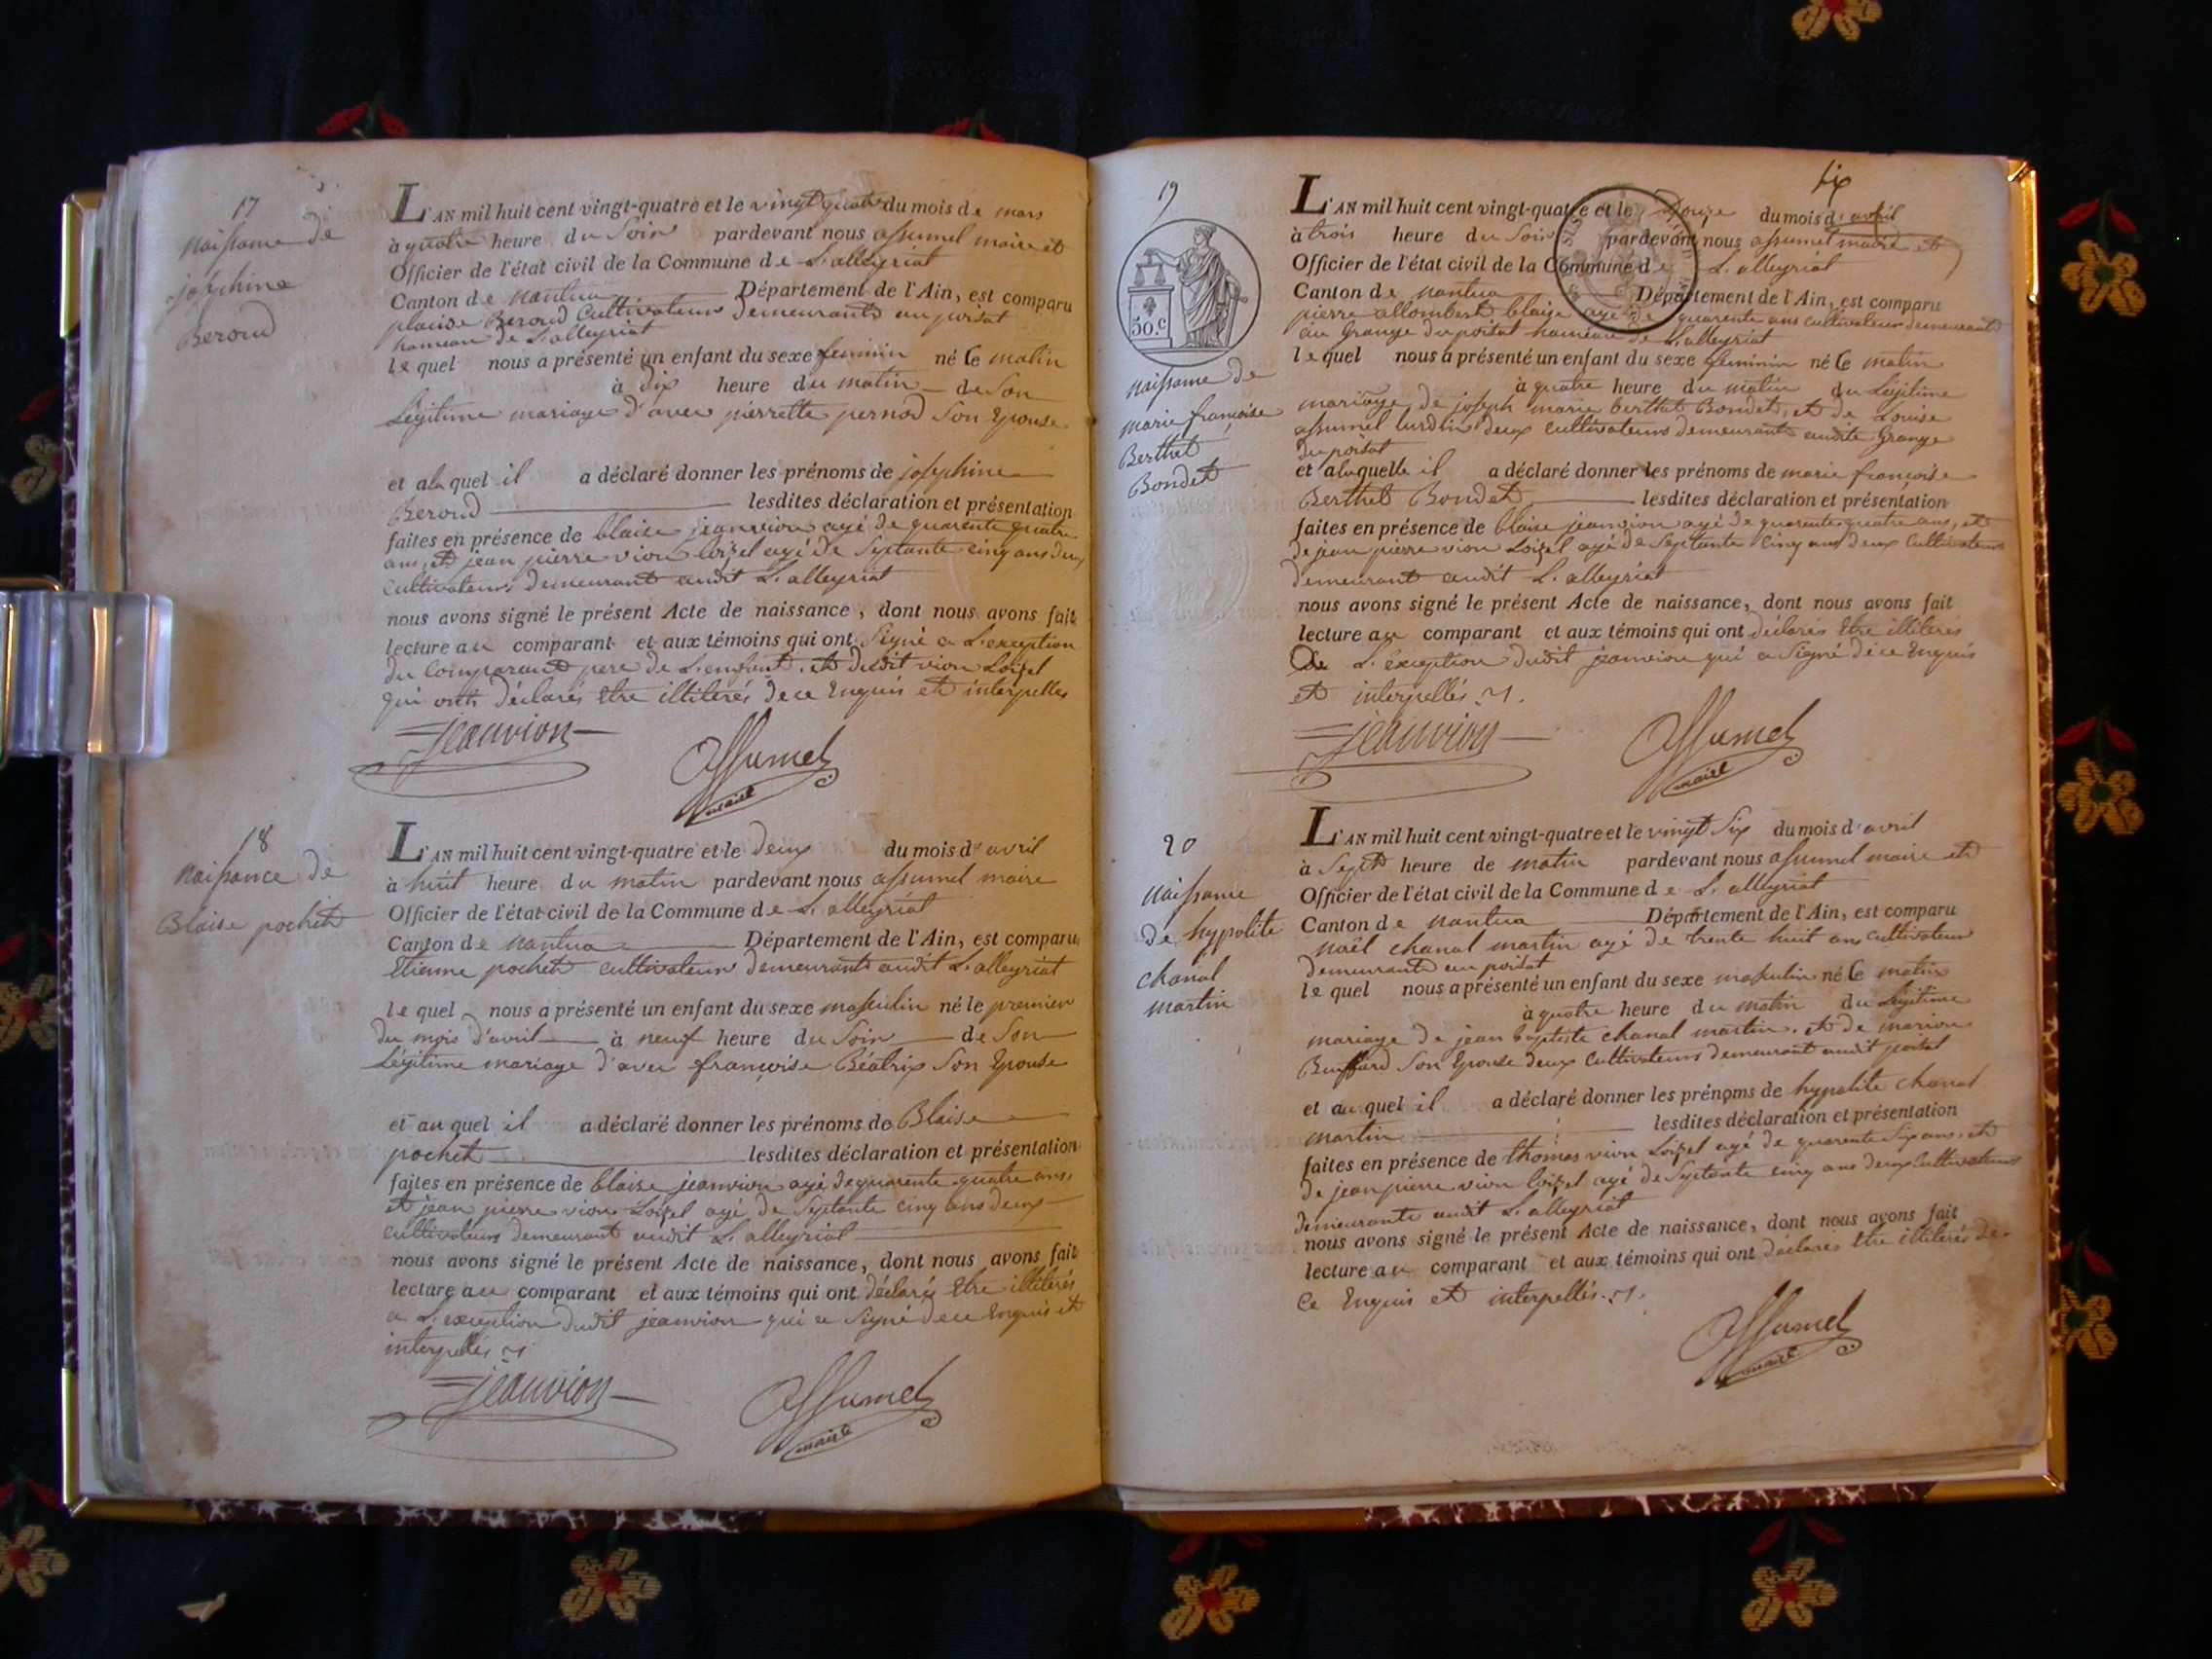 17
naissance de
josephine
Beroud
L'AN mil huit cent vingt-quatre et le vingt quatre du mois de mars
à quatre heure du Soir pardevant nous assumel maire et
Officier de l'état civil de la Commune de L'alleyriat
Canton de nantua Département de l'Ain, est comparu
placide Beroud Cultivateur Demeurant au poisat
hameau de L'alleyriat
le quel nous a présenté un enfant du sexe feminin né le matin
à dix heure du matin de Son
Légitime mariage d'avec pierrette pernod Son Epouse
et a la quel il a déclaré donner les prénoms de josephine
Beroud lesdites déclaration et présentation
faites en présence de blaise jeanvion agé de quarente quatre
ans, et jean pierre vion Loizel agé de Septante cinq ans deux
Cultivateurs demeurant audit L'alleyriat
nous avons signé le présent Acte de naissance, dont nous avons fait
lecture au comparant et aux témoins qui ont Signé a L'exception
du Comparant pere de L'enfent, et dudit vion Loizel
qui onts déclarés Etre illiterés de ce Enquis et interpelles
jeanvion
assumel
maire
18
naissance de
Blaise pochet
L'AN mil huit cent vingt-quatre et le deux du mois d'avril
à huit heure du matin pardevant nous assumel maire
Officier de l'état civil de la Commune de L'alleyriat
Canton de nantua Département de l'Ain, est comparu
Etienne pochet cultivateur demeurant audit L'alleyriat
le quel nous a présenté un enfant du sexe masculin né le premier
du mois d'avril à neuf heure du Soir de Son
Légitime mariage d'avec françoise Béatrix Son Epouse
et au quel il a déclaré donner les prénoms de Blaise
pochet lesdites déclaration et présentation
faites en présence de blaise jeanvion agé de quarente quatre ans,
et jean pierre vion Loizel agé de Septante cinq ans deux
cultivateurs demeurant audit L'alleyriat
nous avons signé le présent Acte de naissance, dont nous avons fait
lecture au comparant et aux témoins qui ont déclarés Etre illiterés
a L'exception dudit jeanvion qui a Signé de ce Enquis et
interpellés
jeanvion
assumel
maire
Six
19
50.c
naissance de
marie françoise
Berthet
Bondet
L'AN mil huit cent vingt-quatre et le Douze du mois d'avril
à trois heure du Soir pardevant nous assumel maire et
Officier de l'état civil de la Commune de L'alleyriat
Canton de nantua Département de l'Ain, est comparu
pierre allombert blaise agé de quarente ans cultivateur demeurant
au Grange du poisat hameau de L'alleyriat
le quel nous a présenté un enfant du sexe feminin né le matin
à quatre heure du matin du Légitime
mariage de joseph marie berthet Bondet, et de Louise
assumel deux cultivateurs demeurant audite Grange
du poisat
et a laquelle il a déclaré donner les prénoms de marie françoise
Berthet Bondet lesdites déclaration et présentation
faites en présence de blaise jeanvion agé de quarente quatre ans, et
de jean pierre vion Loizel agé de Septante cinq ans deux Cultivateurs
demeurant audit L'alleyriat
nous avons signé le présent Acte de naissance, dont nous avons fait
lecture au comparant et aux témoins qui ont déclarés Etre illiterés
L'exception dudit jeanvion qui a Signé de ce Enquis
et interpellés
jeanvion
assumel
maire
20
naissance
de hypolite
chanal
martin
L'AN mil huit cent vingt-quatre et le vingt Six du mois d'avril
à Sept heure de matin pardevant nous assumel maire et
Officier de l'état civil de la Commune de L'alleyriat
Canton de nantua Département de l'Ain, est comparu
noël chanal martin agé de trente huit ans Cultivateur
demeurant au poisat
le quel nous a présenté un enfant du sexe masculin né le matin
à quatre heure du matin du Légitime
mariage de jean baptiste chanal martin, et de marion
Buffard Son Epouse deux Cultivateurs demeurant audit poisat
et au quel il a déclaré donner les prénoms de hypolite chanal
martin lesdites déclaration et présentation
faites en présence de thomas vion Loizel agé de quarente Six ans, et
de jean pierre vion Loizel agé de Septante cinq ans deux Cultivateurs
demeurants audit L'alleyriat
nous avons signé le présent Acte de naissance, dont nous avons fait
lecture au comparant et aux témoins qui ont déclarés Etre illiterés de
ce Enquis et interpellés
assumel
maire